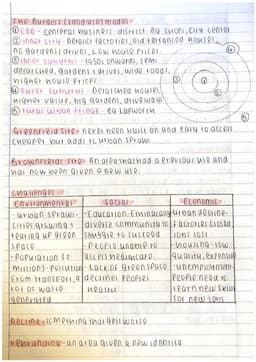 The Burgess (land use) model
① CBD - central business district eg shops, city center
② Inner city - Derelict factories, old terranced houses,
no gardens / drives, Low house prices
③ Inner suburbs - 1930s onwards, semi
detatched, gardens + drives, wide road,
higher house prices
④ outer suburbs - Detatched houses,
higher value, big gardens, driveways
⑤ rural urban fringe - eg Lapworth
Greenfield site - never been built on and easy to access,
cheaper but adds to urban sprawl
Brownfields site - An area that had a previous use and
has now been given a new use.
Challenges
Environmental Social Economic
- urban sprawl - - Education - Eminically urban decline -
cities growing + diverse community to Factories closed
tearing up green struggle to succeed jobs lost
space - People unable to - Housing - low
- Population 1.2 access healthcare. quality, expensive
million - pollution - Lack of green space - unemployment
from transport, a declines peoples people need to
lot of waste health learn new skills
generated for new jobs
Decline - something that gets worse
rebranding - an area given a new identity